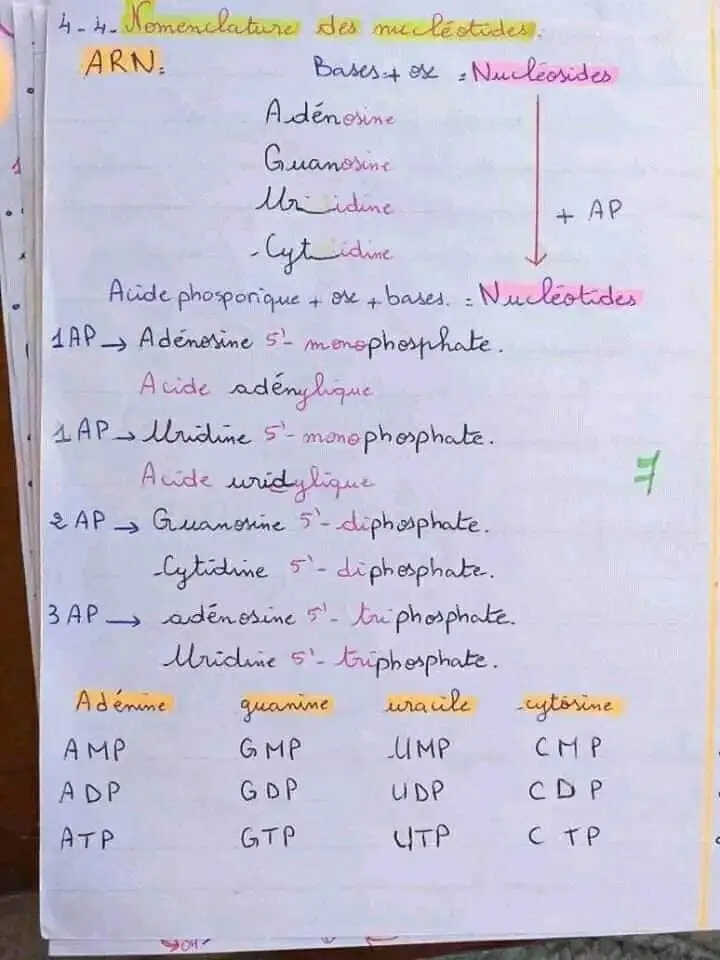 4-4- Nomenclature des nucléotides.
ARN: Bases + ose = Nucléosides
Adénosine
Guanosine
Uridine
+ AP
Cytidine
Acide phosporique + ose + bases. = Nucléotides
1AP → Adénosine 5'- monophosphate.
Acide adénylique
1 AP → Uridine 5'- monophosphate.
Acide uridylique
7
2 AP → Guanosine 5'- diphosphate.
Cytidine 5'- diphosphate.
3 AP → adénosine 5'- triphosphate.
Uridine 5'- triphosphate.
Adénine guanine uracile cytosine
AMP GMP UMP CMP
ADP GDP UDP CDP
ATP GTP UTP CTP
OH